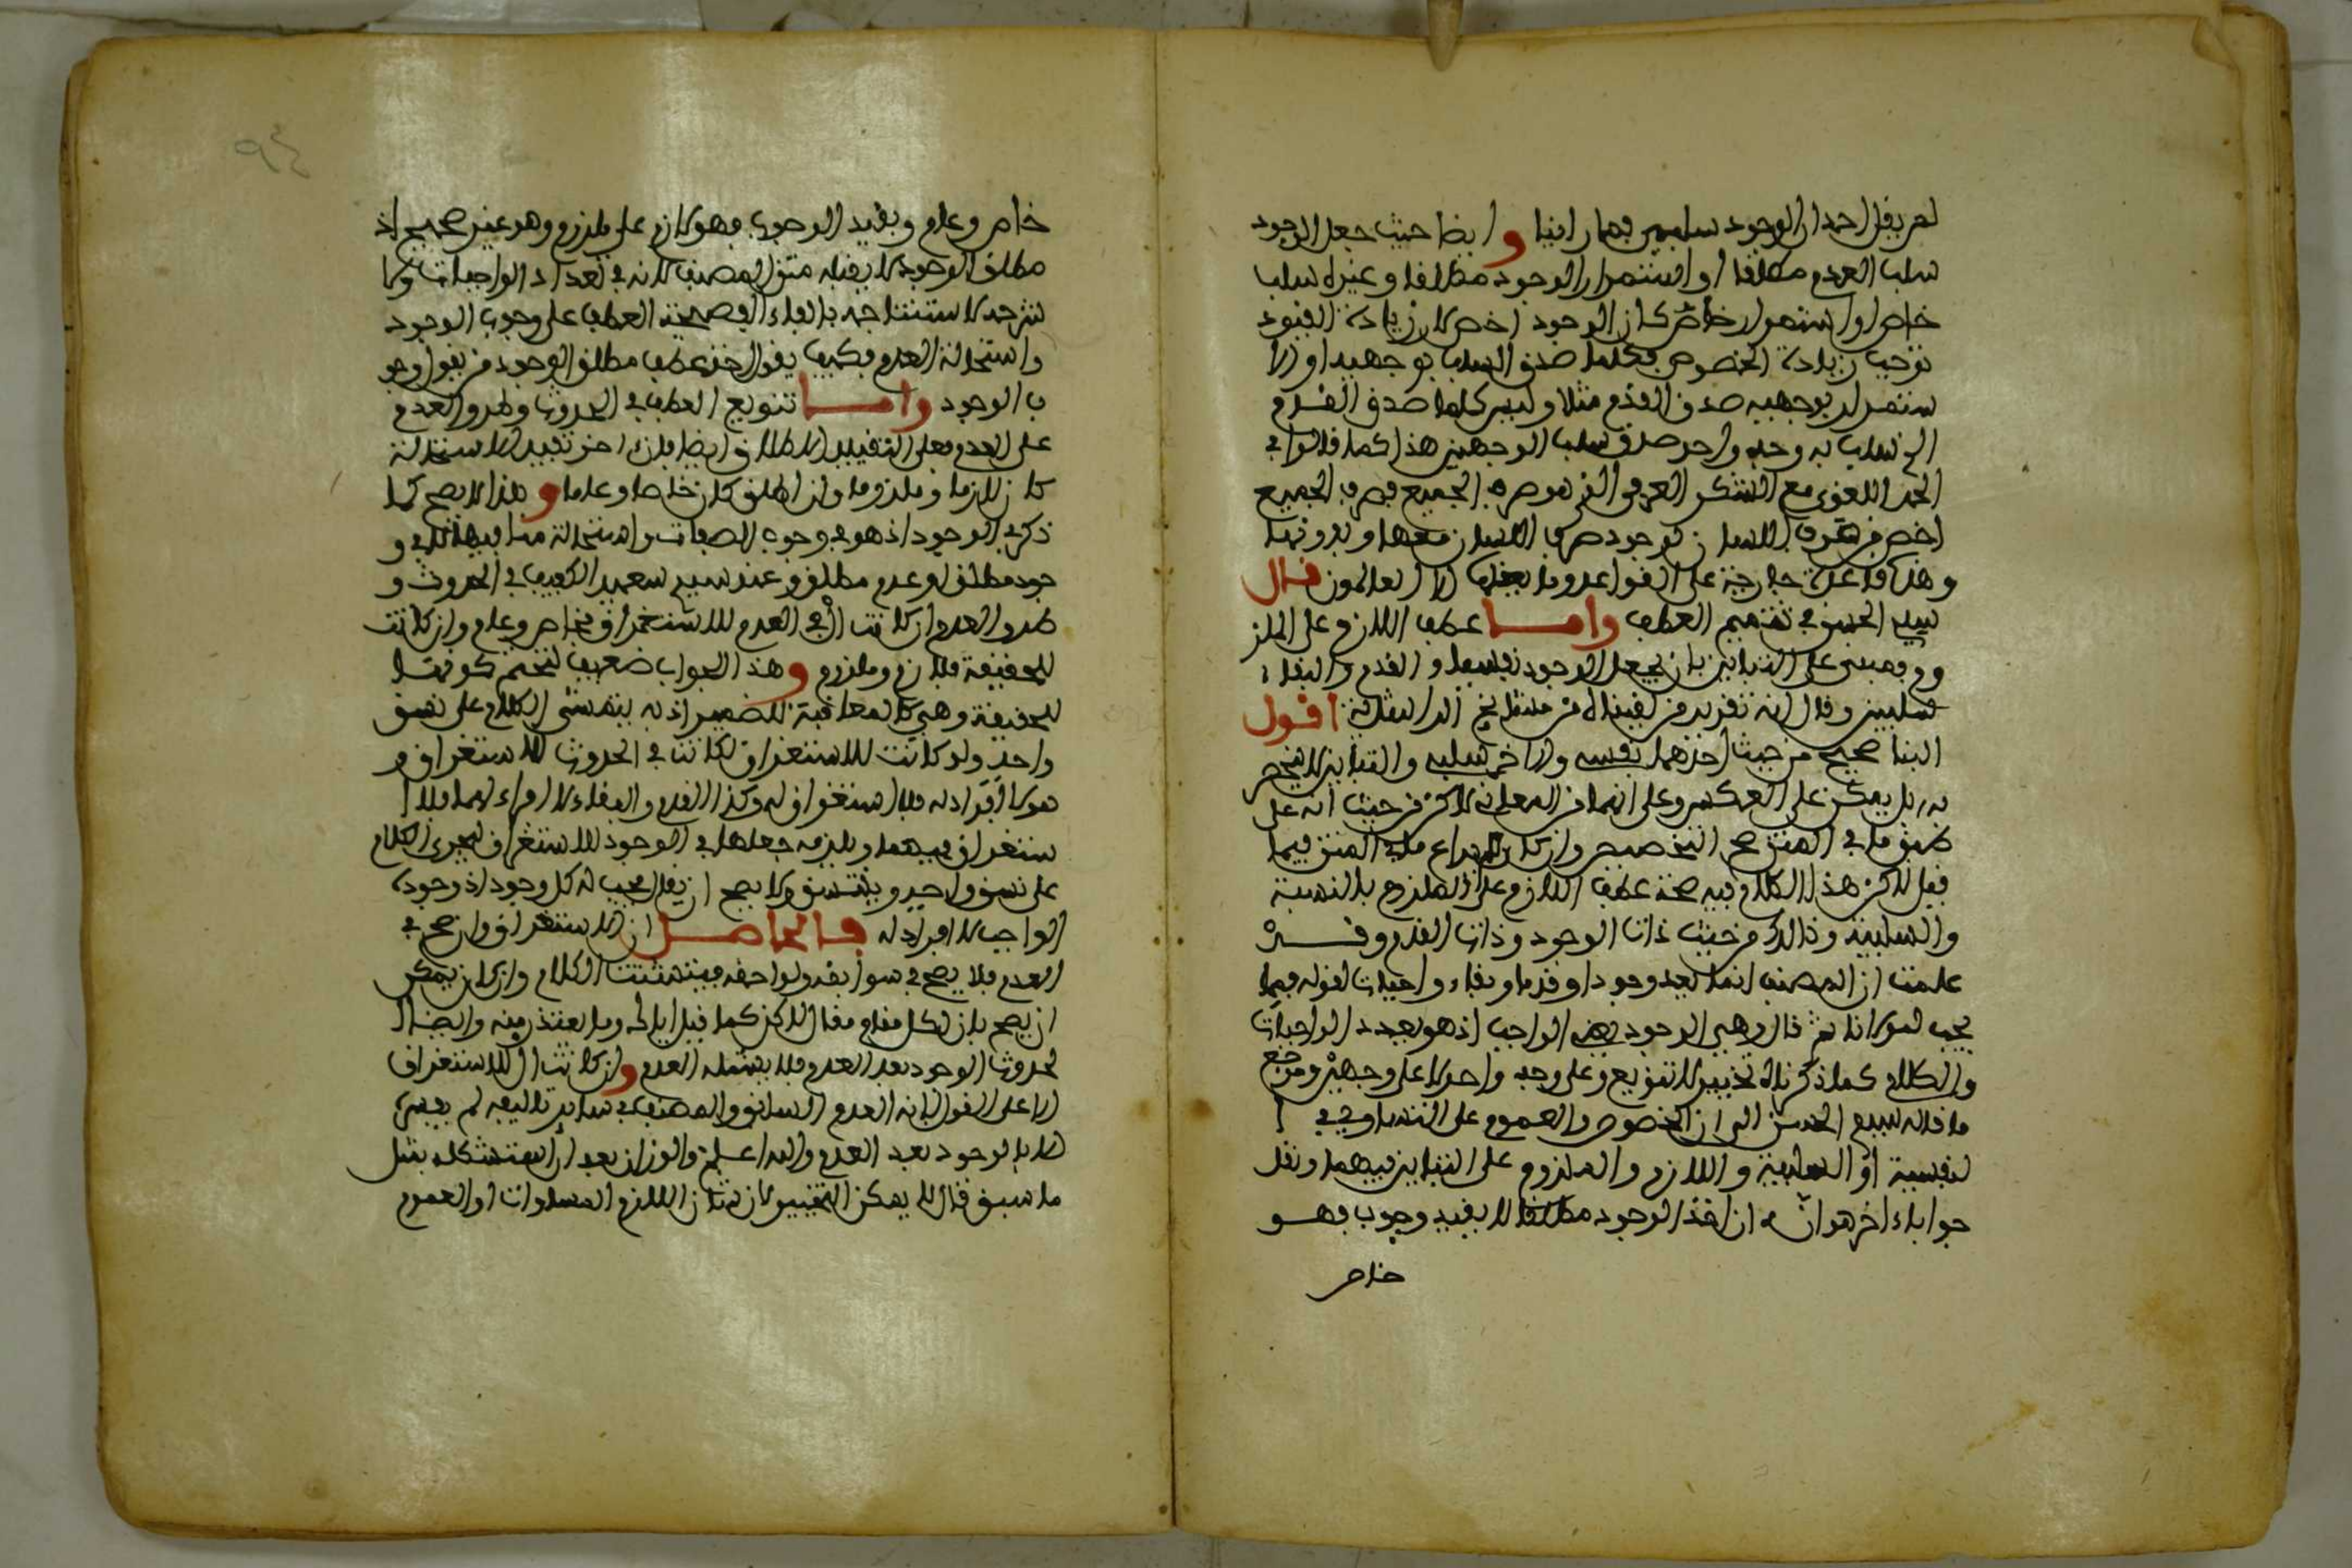 لم يقل احد ان الوجود سلبي فيما راينا و ايضا حيث جعل الوجود
سلب العدم مطلقا او استمرار الوجود مطلقا وغيره سلب
خاص او استمرار خاص كان الوجود اخص لان زيادة القيود
توجب زيادة الخصوص فكلما صدق السلب بوجهيه او الا
ستمرار بوجهيه صدق القدم مثلا وليس كلما صدق القدم
الى سلب به وجه واحد صدق سلب الوجهين هذا كما قالوا في
الحمد اللغوي مع الشكر العرفي الذي هو صرف الجميع فصرف الجميع
اخص من صرف اللسان لوجود صرف اللسان معها وبدونها
وهذه قاعدة جارية على القواعد وما يعقلها الا العالمون قال
سيدي الحسن في تتميم العطف واما عطف اللازم على الملز
وم فمبني على التباين بان يجعل الوجود نفسيا و القدم والبقاء
سلبيين وقال انه تقرير من لقيناه من مشايخ الدراسة اقول
البنا صحيح من حيث احدهما نفسي والاخر سلبي والتباين لا ينحصر
به بل يمكن على العكس وعلى انهما من المعاني لاكن من حيث انه على
طبق ما في المتن صح التخصيص وان كان ما في المتن فيما
قيل لاكن هذا الكلام فيه صحة عطف اللازم على الملزوم بالنسبة
والسلبية وذالك من حيث ذات الوجود وذات القدم وقد
علمت ان المصنف انما يعد وجودا وقدما وبقاء واجبات لقوله فيما
يجب لمولانا ثم قال وهي الوجود الواجب اذ هو بعدد الواجبات
والكلام كما ذكرناه تخيير لا تنويع وعلى وجه واحد لا على وجهين ومرجع
ما قاله سيدي الحسن الى ان الخصوص والعموم على التساوي في ا
لنفسية او السلبية و اللازم والملزوم على التباين فيهما ونقل
جوابا اخر هو انه ان اخذ الوجود مطلقا لا بقيد وجوب فهو
خاص
خاص وعام وبقيد الوجوب فهو لازم على ملزوم وهو غير صحيح اذ
مطلق الوجود لا يقبله متن المصنف لانه في تعداد الواجبات وكما
شرحه لاستنتاجه بالفاء الفصيحة العطف على وجوب الوجود
واستحالة العدم فكيف يقول اخذ عطف مطلق الوجود من يقول وجو
ب الوجود واما تنويع العطف في الحدوث وطرو العدم
على العدم فعلى التقييد والاطلاق ايضا فان اخذ تقييد الاستحالة
كان لازما وملزوما وان اطلق كان خاصا وعاما و هذا لا يصح كما
ذكر في الوجود اذ هو في وجوب الصفات واستحالة منافيها لا في و
جود مطلق او عدم مطلق وعند سيدي سعيد ال في الحدوث و
طرو العدم ان كانت ال في العدم للاستغراق فخاص وعام وان كانت
للحقيقة فلازم وملزوم و هذا الجواب ضعيف لتحتم كونها
للحقيقة وهي كالمعاقبة للضمير اذ به يتمشى الكلام على نسق
واحد ولو كانت للاستغراق لكانت في الحدوث للاستغراق و
هو لا افراد له فلا استغراق له وكذا القدم والبقاء لا افراد لهما فلا ا
ستغراق فيهما ويلزمه جعلها في الوجود للاستغراق ليجري الكلام
على نسق واحد ويتسق ولا يصح ان يقال يجب له كل وجود اذ وجود
الواجب لا افراد له فالحاصل ان الاستغراق وان صح في
العدم فلا يصح في سوابقه ولواحقه فيتشتت الكلام وان كان يمكن
ان يصح بان لكل مقام مقال لاكن كما قيل اياك وما يعتذر منه وايضا ا
لحدوث الوجود بعد العدم فلا يشمله العدم وان كانت ال للاستغراق
الا على القول بانه العدم السابق والمصنف في ساير تاليفه لم يفسر
الا بالوجود بعد العدم والله اعلم والوزان بعد ان استشكله بمثل
ما سبق قال لا يمكن التخيير لان شان اللازم المساوات او العموم